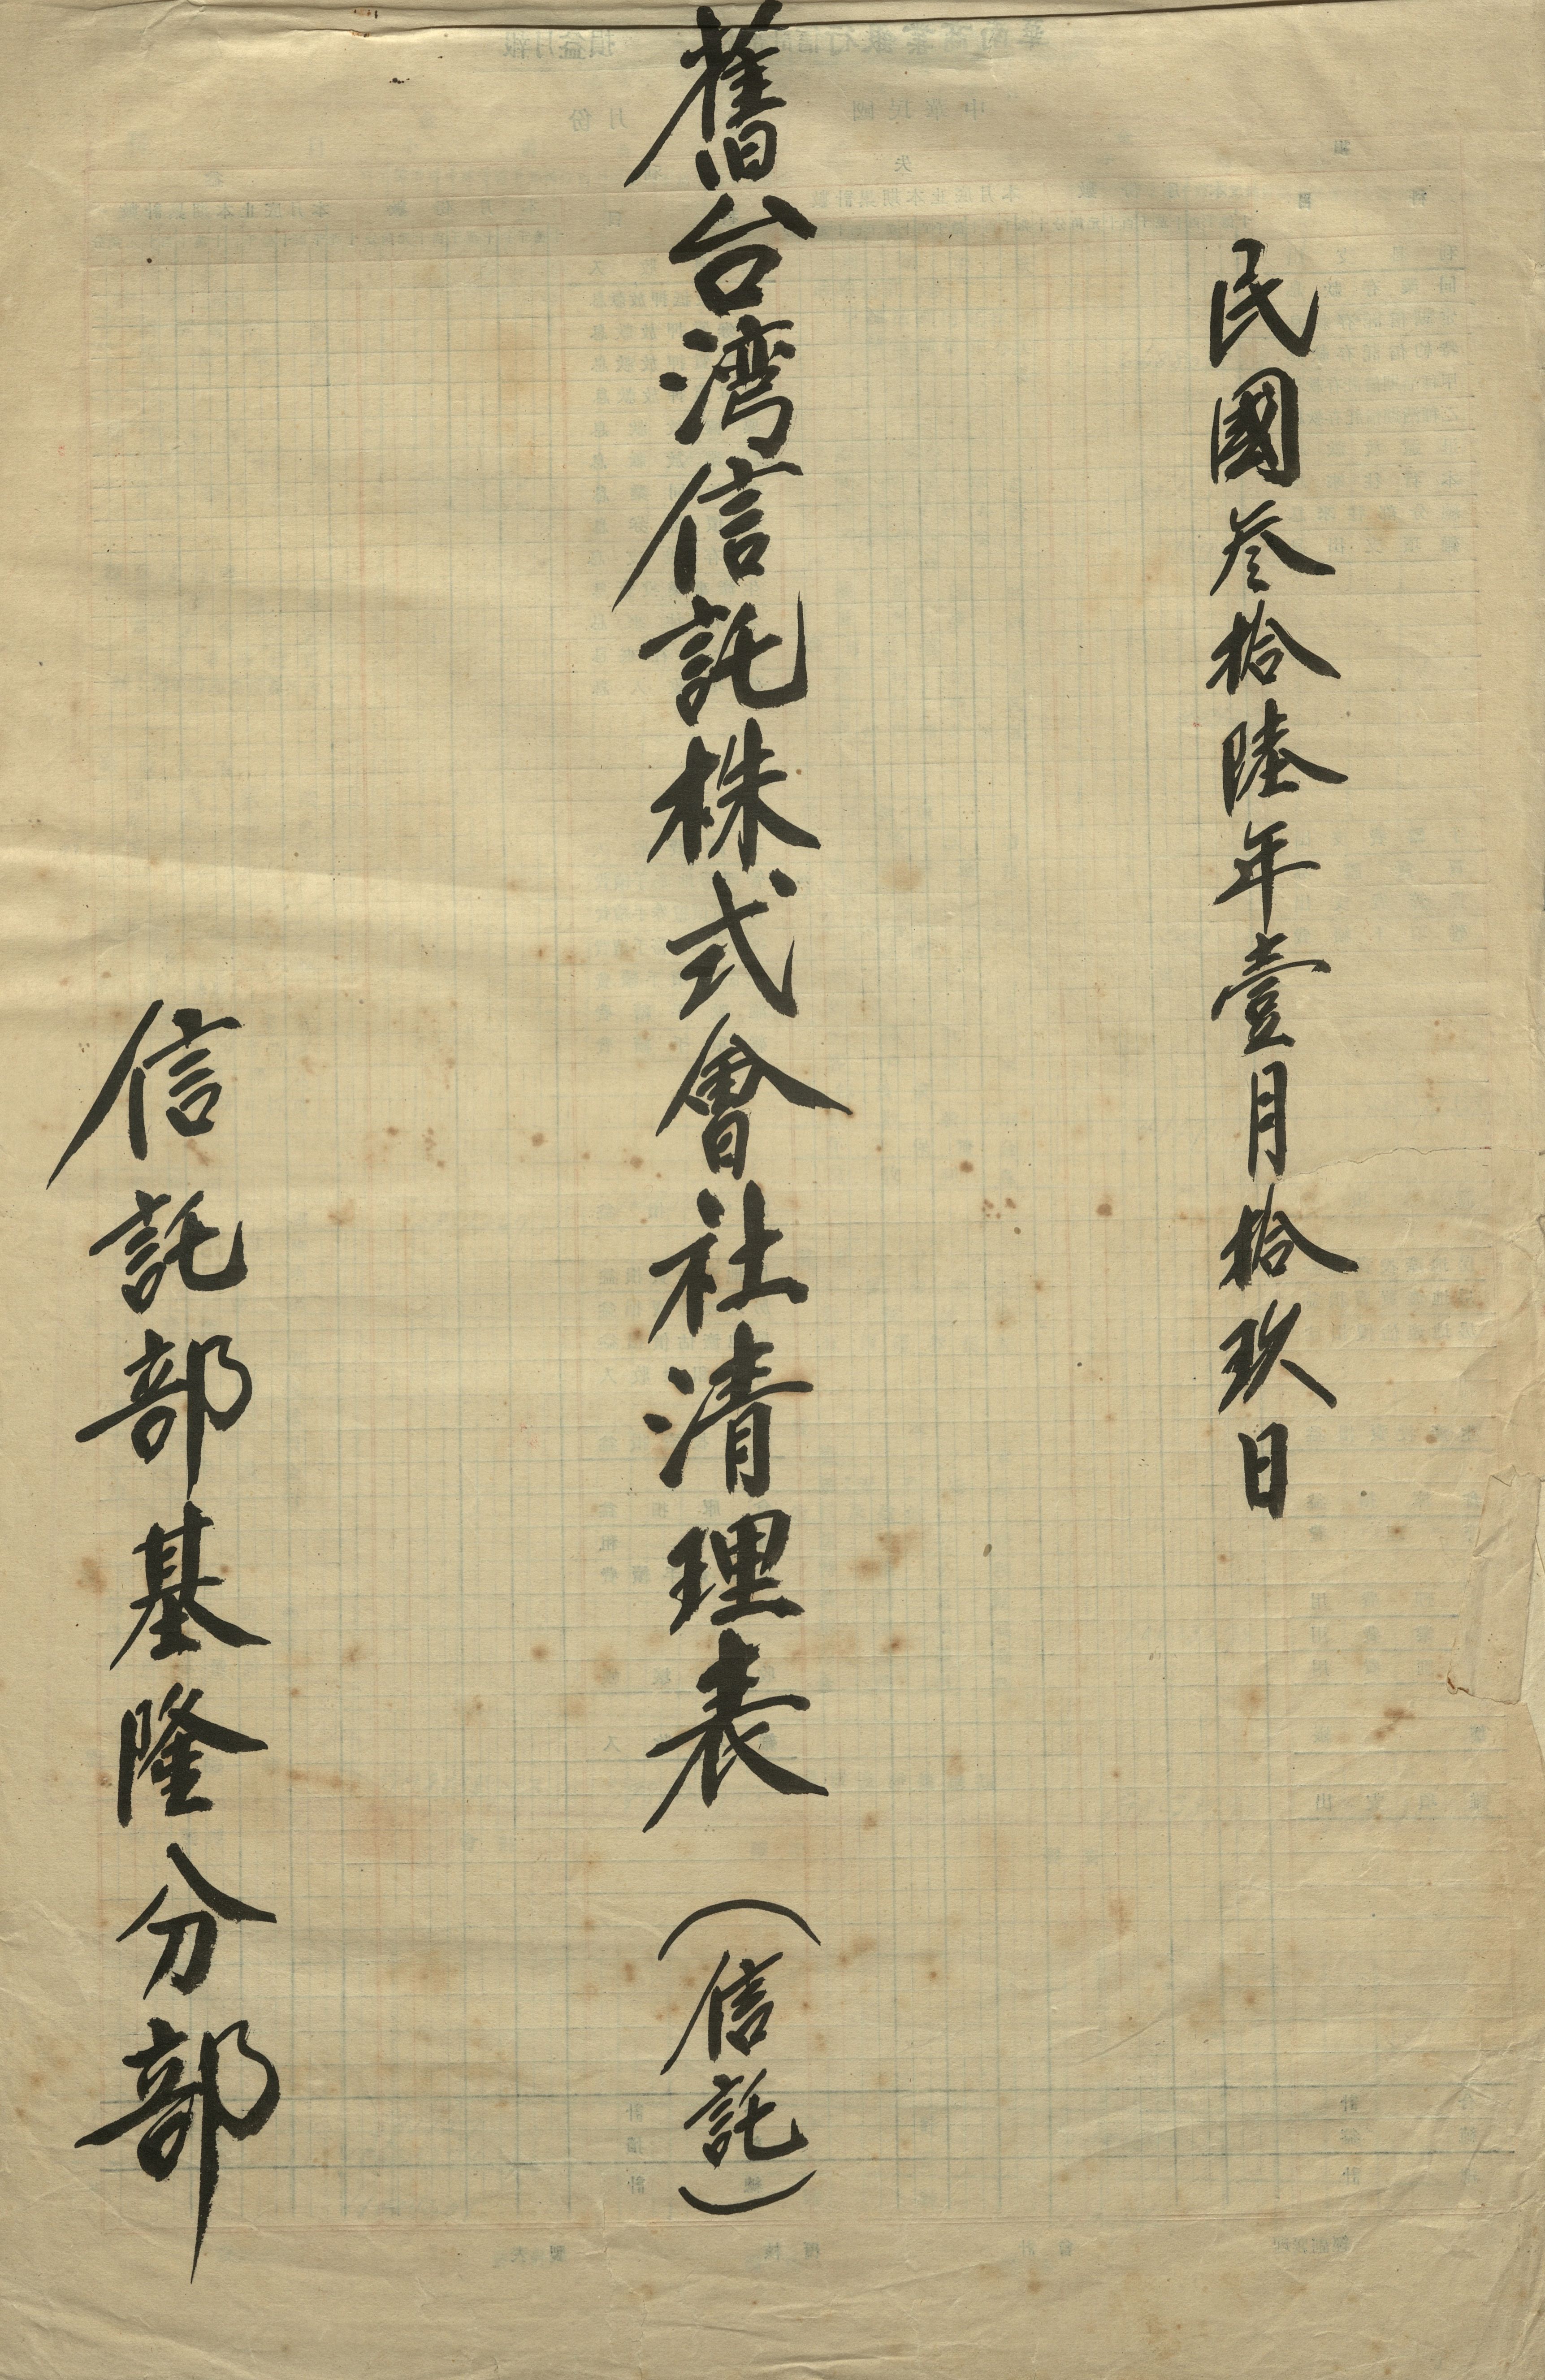 民國叁拾陸年壹月拾玖日
舊台湾信託株式會社清理表(信託)
信託部基隆分部